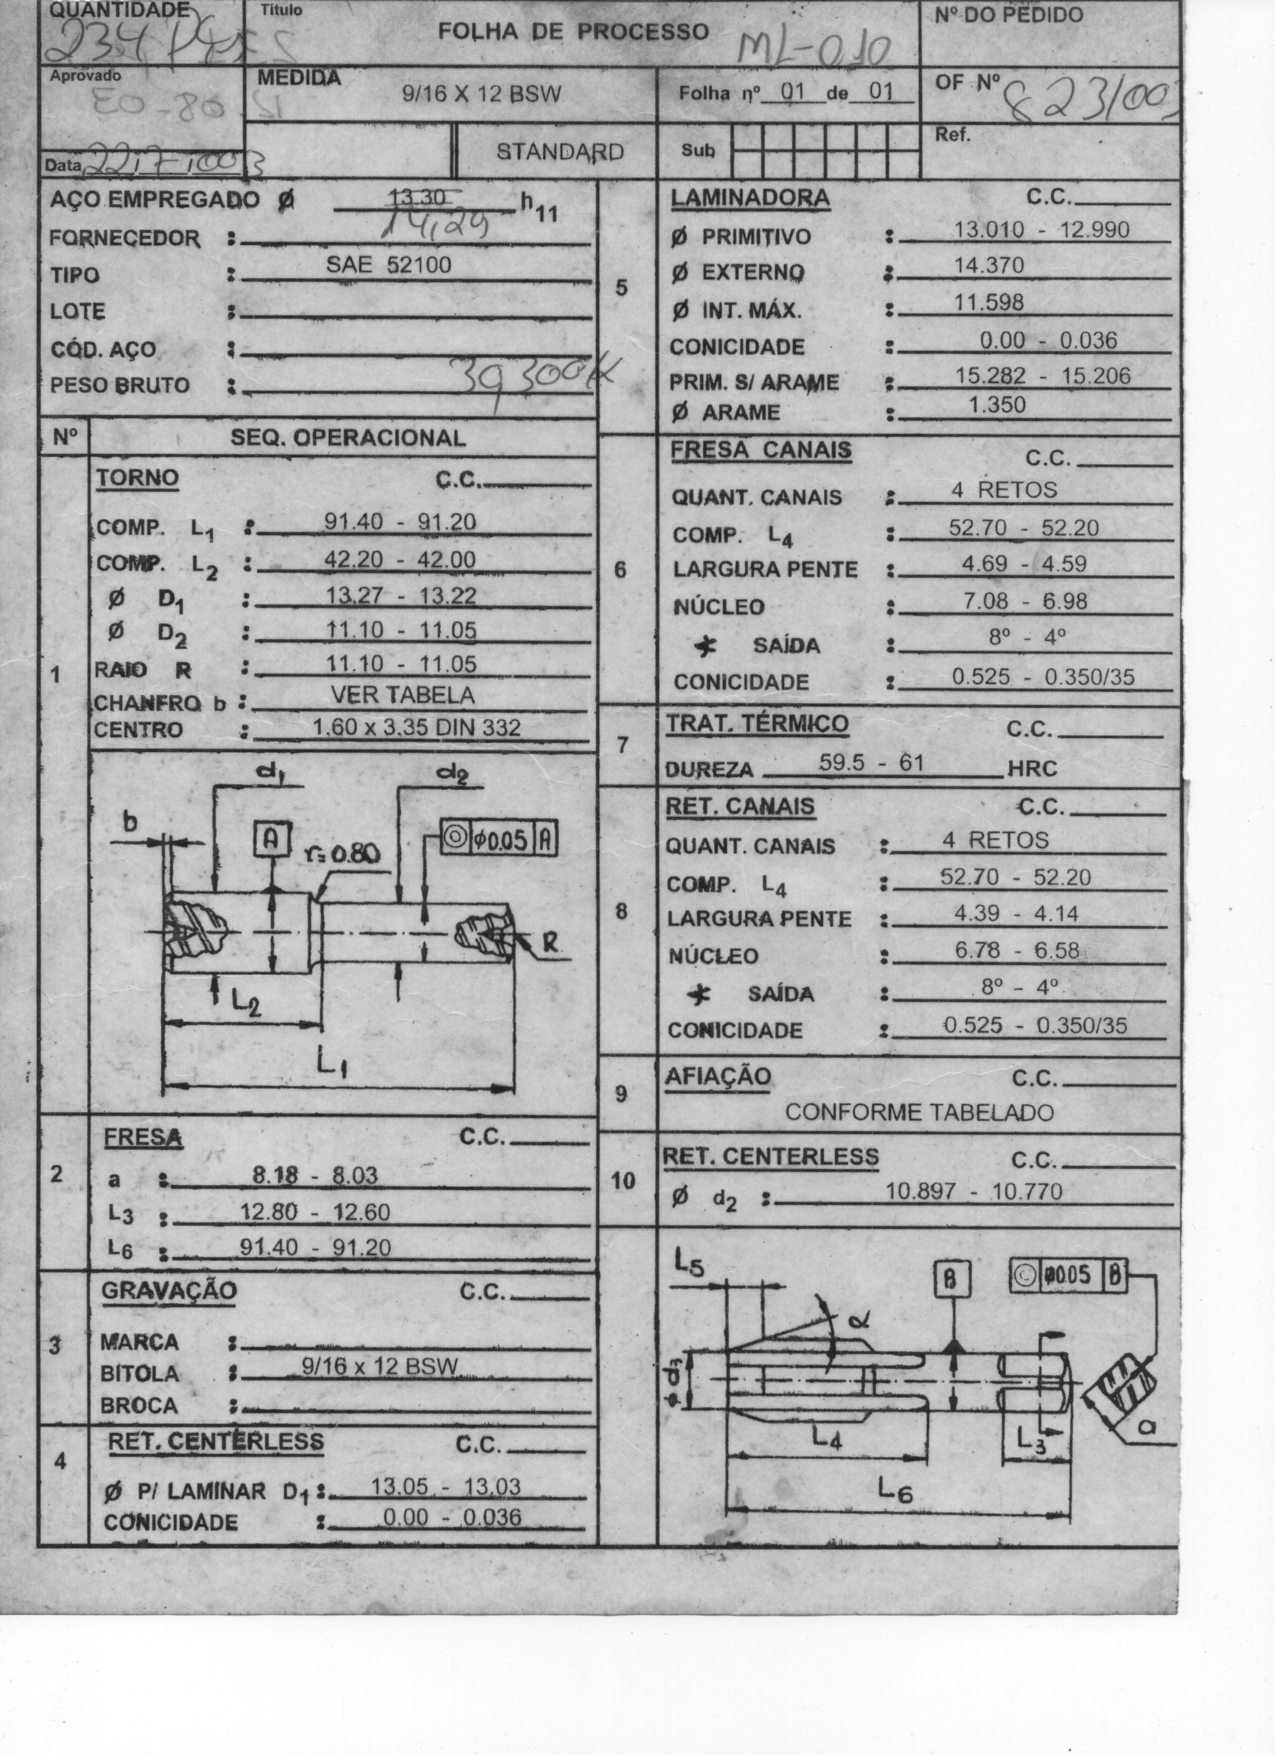 QUANTIDADE
234
Título
FOLHA DE PROCESSO
ML-010
Nº DO PEDIDO
Aprovado
MEDIDA
9/16 X 12 BSW
Folha nº 01 de 01
OF Nº
STANDARD
Sub
Ref.
Data
AÇO EMPREGADO Ø 13.30 h11
14,29
FORNECEDOR :
TIPO : SAE 52100
LOTE :
CÓD. AÇO :
PESO BRUTO : 39,300K
Nº SEQ. OPERACIONAL
1
TORNO C.C.
COMP. L1 : 91.40 - 91.20
COMP. L2 : 42.20 - 42.00
Ø D1 : 13.27 - 13.22
Ø D2 : 11.10 - 11.05
RAIO R : 11.10 - 11.05
CHANFRO b : VER TABELA
CENTRO : 1.60 x 3.35 DIN 332
d1
d2
b
A
r=0.80
◎ Ø0.05 A
R
L2
L1
2
FRESA C.C.
a : 8.18 - 8.03
L3 : 12.80 - 12.60
L6 : 91.40 - 91.20
3
GRAVAÇÃO C.C.
MARCA :
BITOLA : 9/16 x 12 BSW
BROCA :
4
RET. CENTERLESS C.C.
Ø P/ LAMINAR D1 : 13.05 - 13.03
CONICIDADE : 0.00 - 0.036
5
LAMINADORA C.C.
Ø PRIMITIVO : 13.010 - 12.990
Ø EXTERNO : 14.370
Ø INT. MÁX. : 11.598
CONICIDADE : 0.00 - 0.036
PRIM. S/ ARAME : 15.282 - 15.206
Ø ARAME : 1.350
6
FRESA CANAIS C.C.
QUANT. CANAIS : 4 RETOS
COMP. L4 : 52.70 - 52.20
LARGURA PENTE : 4.69 - 4.59
NÚCLEO : 7.08 - 6.98
SAÍDA : 8º - 4º
CONICIDADE : 0.525 - 0.350/35
7
TRAT. TÉRMICO C.C.
DUREZA 59.5 - 61 HRC
8
RET. CANAIS C.C.
QUANT. CANAIS : 4 RETOS
COMP. L4 : 52.70 - 52.20
LARGURA PENTE : 4.39 - 4.14
NÚCLEO : 6.78 - 6.58
SAÍDA : 8º - 4º
CONICIDADE : 0.525 - 0.350/35
9
AFIAÇÃO C.C.
CONFORME TABELADO
10
RET. CENTERLESS C.C.
Ø d2 : 10.897 - 10.770
L5
B
◎ Ø0.05 B
α
Ø d3
a
L4
L3
L6